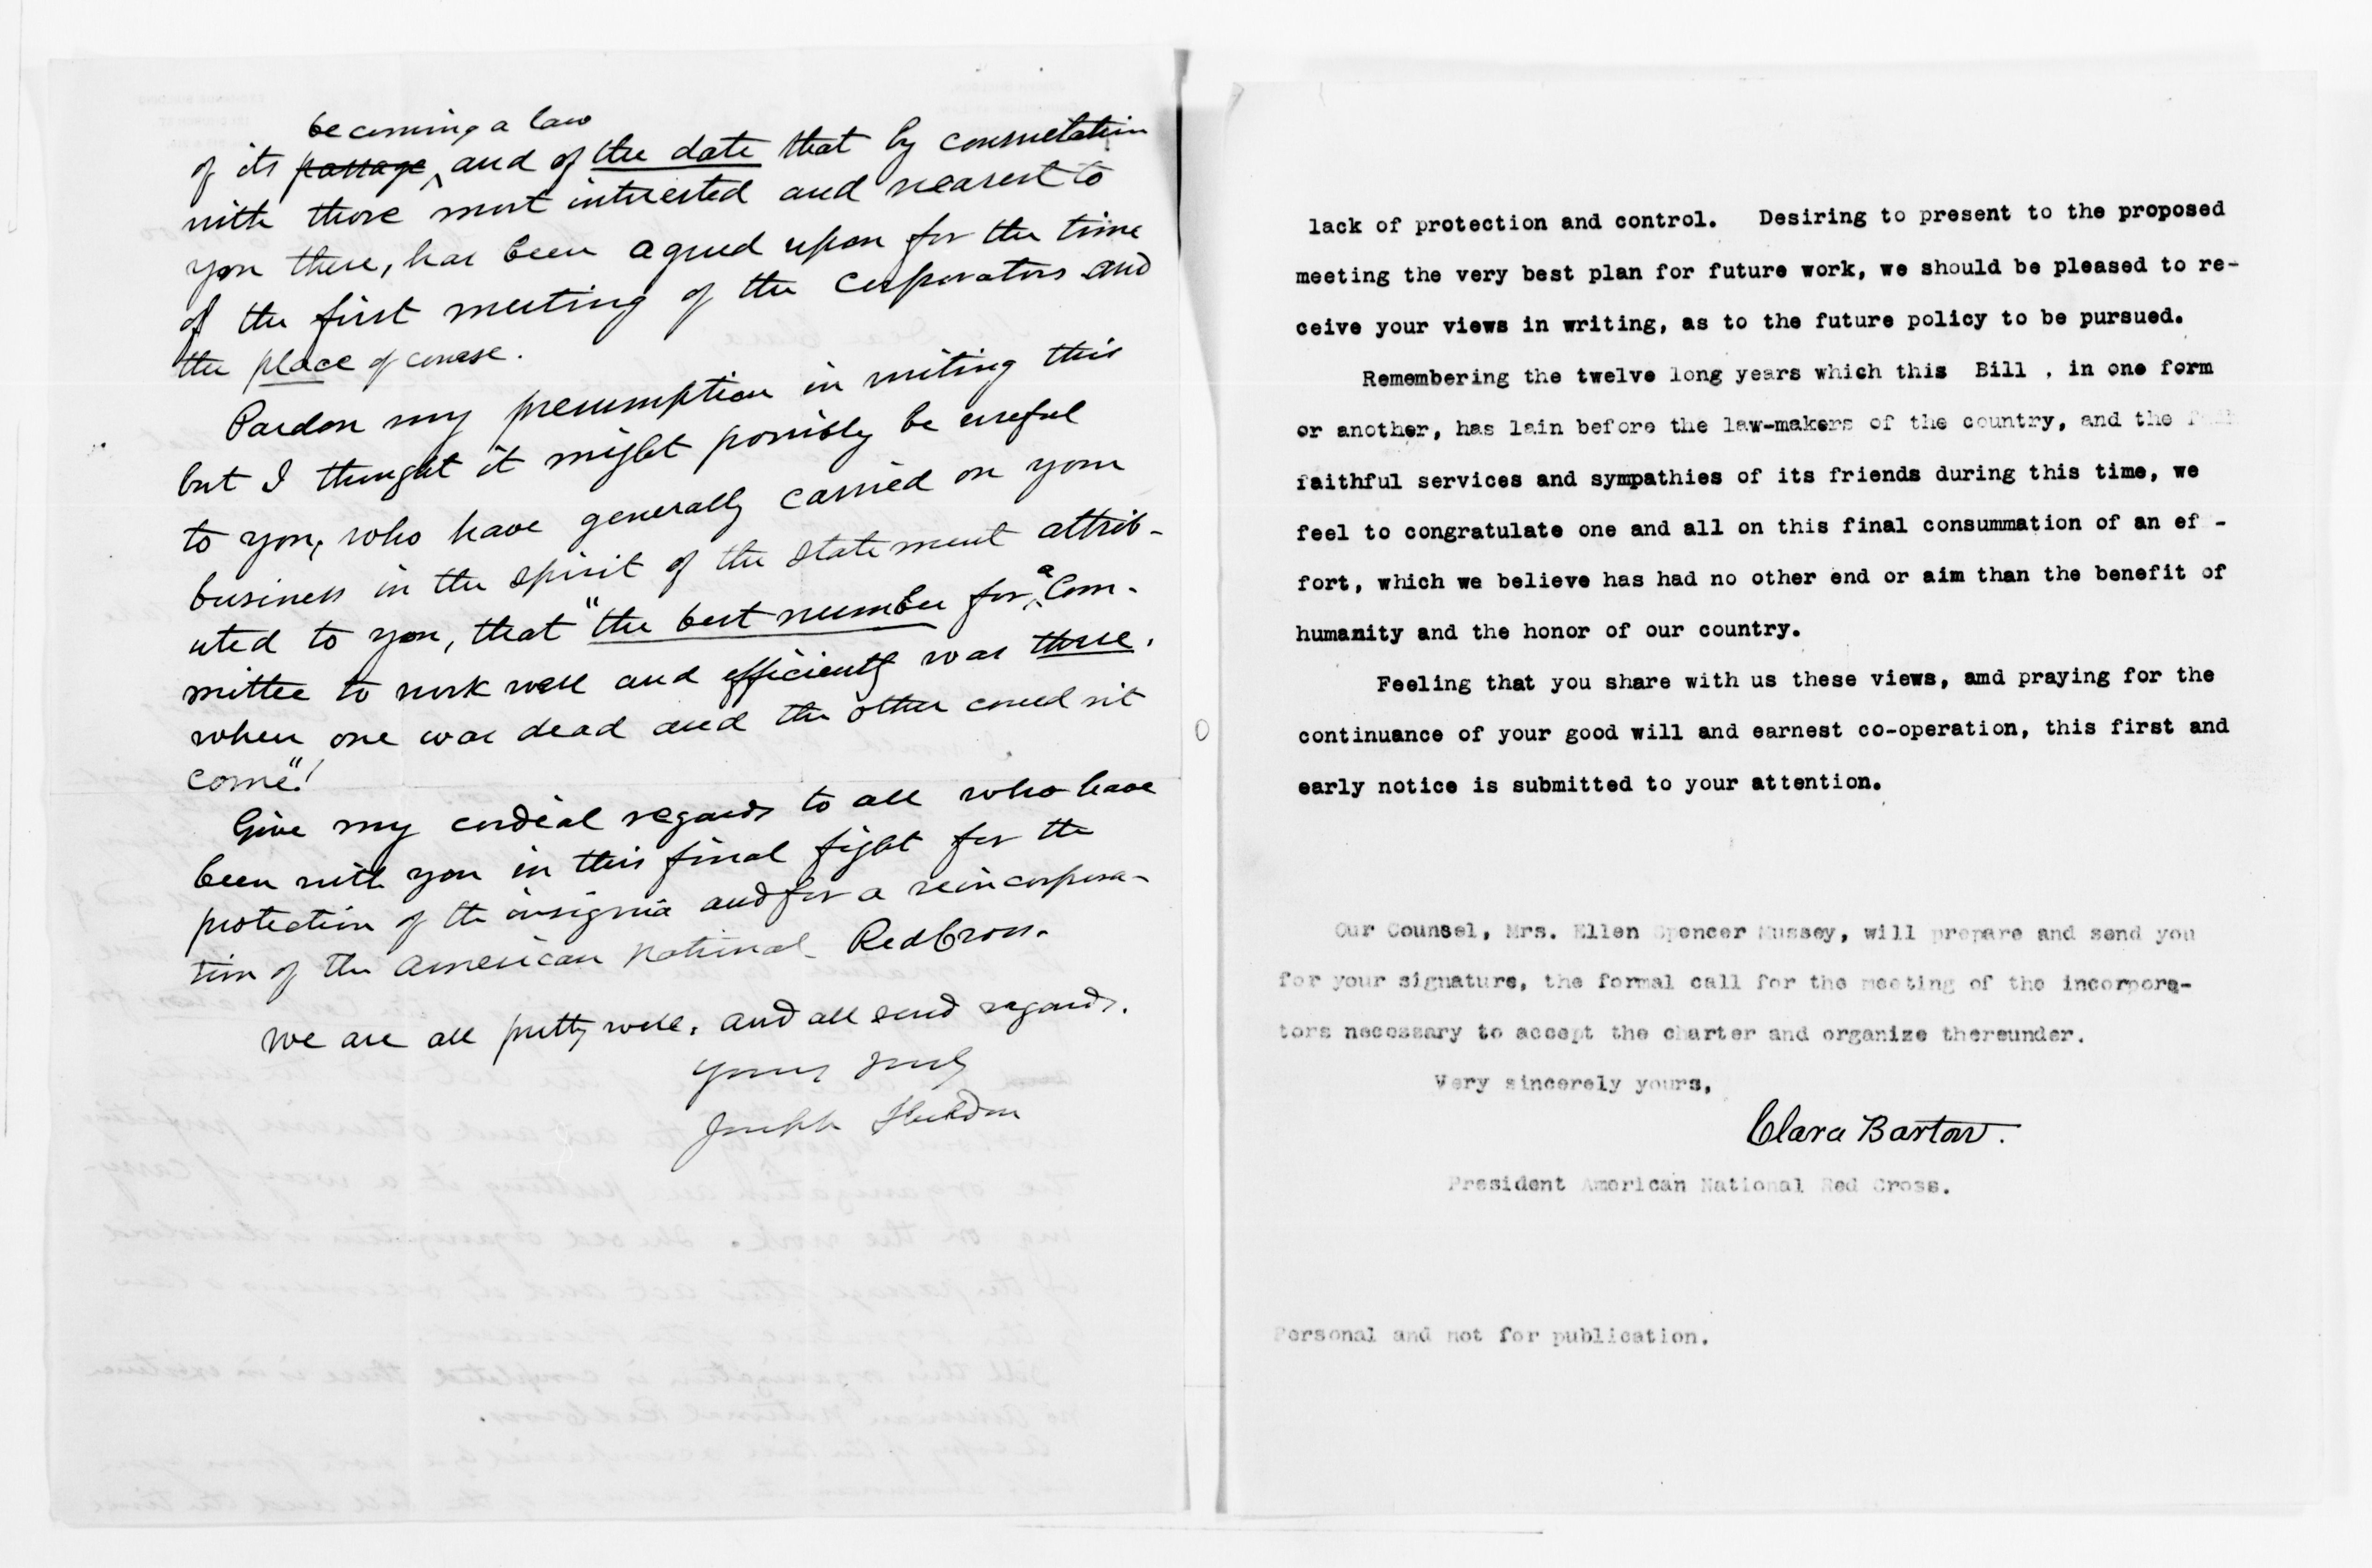 becoming a law
of its passage and of the date that by consultation
with those most interested and nearest to
you there, has been agreed upon for the time
of the first meeting of the corporators and
the place of course.
Pardon my presumption in writing this
but I thought it might possibly be useful
to you, who have generally carried on your
business in the spirit of the statement attrib-
uted to you, that "the best number for a Com-
mittee to work well and efficiently was three,
when one was dead and the other could not
come"!
Give my cordial regards to all who have
been with you in this final fight for the
protection of the insignia and for a reincorpora-
tion of the American National Red Cross.
We are all pretty well, and all send regards.
Yours truly
Joseph Sheldon
lack of protection and control. Desiring to present to the proposed
meeting the very best plan for future work, we should be pleased to re-
ceive your views in writing, as to the future policy to be pursued.
Remembering the twelve long years which this Bill , in one form
or another, has lain before the law-makers of the country, and the
faithful services and sympathies of its friends during this time, we
feel to congratulate one and all on this final consummation of an ef -
fort, which we believe has had no other end or aim than the benefit of
humanity and the honor of our country.
Feeling that you share with us these views, amd praying for the
continuance of your good will and earnest co-operation, this first and
early notice is submitted to your attention.
Our Counsel, Mrs. Ellen Spencer Mussey, will prepare and send you
for your signature, the formal call for the meeting of the incorpora-
tors necessary to accept the charter and organize thereunder.
Very sincerely yours,
Clara Barton.
President American National Red Cross.
Personal and not for publication.